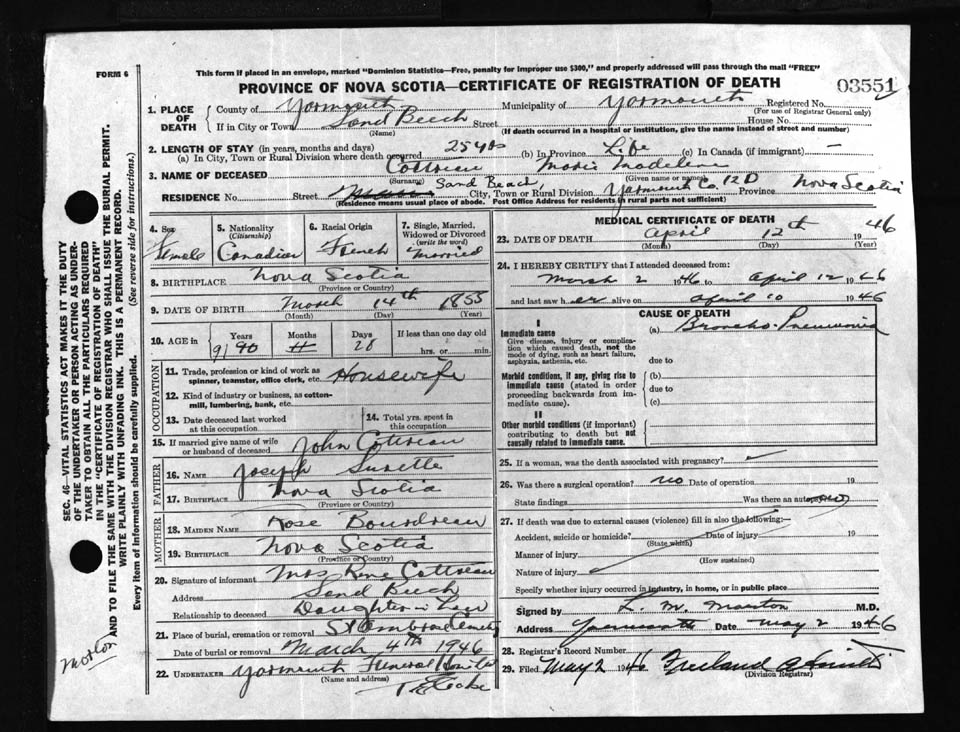 FORM 6
This form if placed in an envelope, marked "Dominion Statistics—Free, penalty for improper use $300," and properly addressed will pass through the mail "FREE"
PROVINCE OF NOVA SCOTIA—CERTIFICATE OF REGISTRATION OF DEATH
03551
1. PLACE OF DEATH
County of Yarmouth Municipality of Yarmouth Registered No.
(For use of Registrar General only)
If in City or Town Sand Beech Street House No.
(Name) (If death occurred in a hospital or institution, give the name instead of street and number)
2. LENGTH OF STAY (in years, months and days)
(a) In City, Town or Rural Division where death occurred 25 yrs (b) In Province Life (c) In Canada (if immigrant) —
3. NAME OF DECEASED Cottreau Marie Madelene
(Surname) (Given name or names)
RESIDENCE No. Street Sand Beach, City, Town or Rural Division Yarmouth Co. 12 D Province Nova Scotia
(Residence means usual place of abode. Post Office Address for residents in rural parts not sufficient)
4. Sex Female
5. Nationality (Citizenship) Canadian
6. Racial Origin French
7. Single, Married, Widowed or Divorced (write the word) Married
8. BIRTHPLACE Nova Scotia
(Province or Country)
9. DATE OF BIRTH March 14th 1855
(Month) (Day) (Year)
10. AGE in Years Months Days If less than one day old
91 90 28 hrs. or min.
OCCUPATION
11. Trade, profession or kind of work as spinner, teamster, office clerk, etc. Housewife
12. Kind of industry or business, as cotton-mill, lumbering, bank, etc.
13. Date deceased last worked at this occupation
14. Total yrs. spent in this occupation
15. If married give name of wife or husband of deceased John Cottreau
FATHER
16. NAME Joseph Surette
17. BIRTHPLACE Nova Scotia
(Province or Country)
MOTHER
18. MAIDEN NAME Rose Bourdreau
19. BIRTHPLACE Nova Scotia
(Province or Country)
20. Signature of informant Mrs Rene Cottreau
Address Sand Beech
Relationship to deceased Daughter in Law
21. Place of burial, cremation or removal St Ambrose Cemetery
Date of burial or removal March 4th 1946
22. UNDERTAKER Yarmouth Funeral
(Name and address)
MEDICAL CERTIFICATE OF DEATH
23. DATE OF DEATH April 12th 1946
(Month) (Day) (Year)
24. I HEREBY CERTIFY that I attended deceased from:
March 2 1946 to April 12 1946
and last saw her alive on April 10 1946
CAUSE OF DEATH
I
Immediate cause (a) Broncho-Pneumonia
Give disease, injury or complication which caused death, not the mode of dying, such as heart failure, asphyxia, asthenia, etc.
due to
Morbid conditions, if any, giving rise to immediate cause (stated in order proceeding backwards from immediate cause).
(b)
due to
(c)
II
Other morbid conditions (if important) contributing to death but not causally related to immediate cause.
25. If a woman, was the death associated with pregnancy?
26. Was there a surgical operation? no Date of operation 19
State findings Was there an autopsy? no
27. If death was due to external causes (violence) fill in also the following:—
Accident, suicide or homicide? Date of injury 19
(State which)
Manner of injury
(How sustained)
Nature of injury
Specify whether injury occurred in industry, in home, or in public place
Signed by L. M. Morton M.D.
Address Yarmouth Date May 2 1946
28. Registrar's Record Number
29. Filed May 2 1946 Freeland A Smith
(Division Registrar)
SEC. 46—VITAL STATISTICS ACT MAKES IT THE DUTY OF THE UNDERTAKER OR PERSON ACTING AS UNDERTAKER TO OBTAIN ALL THE PARTICULARS REQUIRED IN THE "CERTIFICATE OF REGISTRATION OF DEATH" AND TO FILE THE SAME WITH THE DIVISION REGISTRAR WHO SHALL ISSUE THE BURIAL PERMIT.
WRITE PLAINLY WITH UNFADING INK. THIS IS A PERMANENT RECORD.
Every item of information should be carefully supplied. (See reverse side for instructions.)